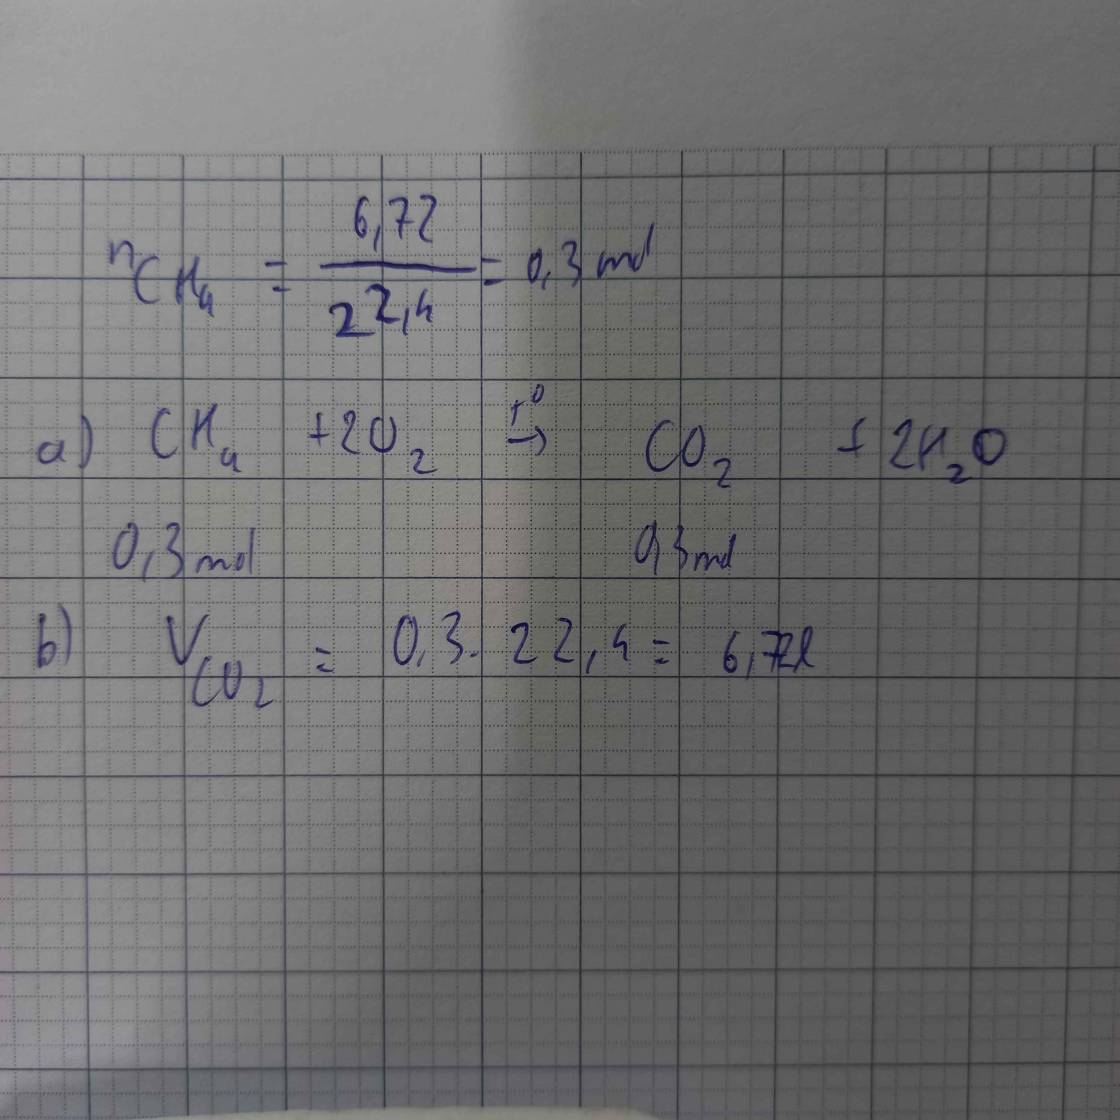 nCH₄ = 6,72 / 22,4 = 0,3 mol
a) CH₄ + 2O₂ →t⁰ CO₂ + 2H₂O
0,3 mol 0,3 mol
b) V CO₂ = 0,3 . 22,4 = 6,72l